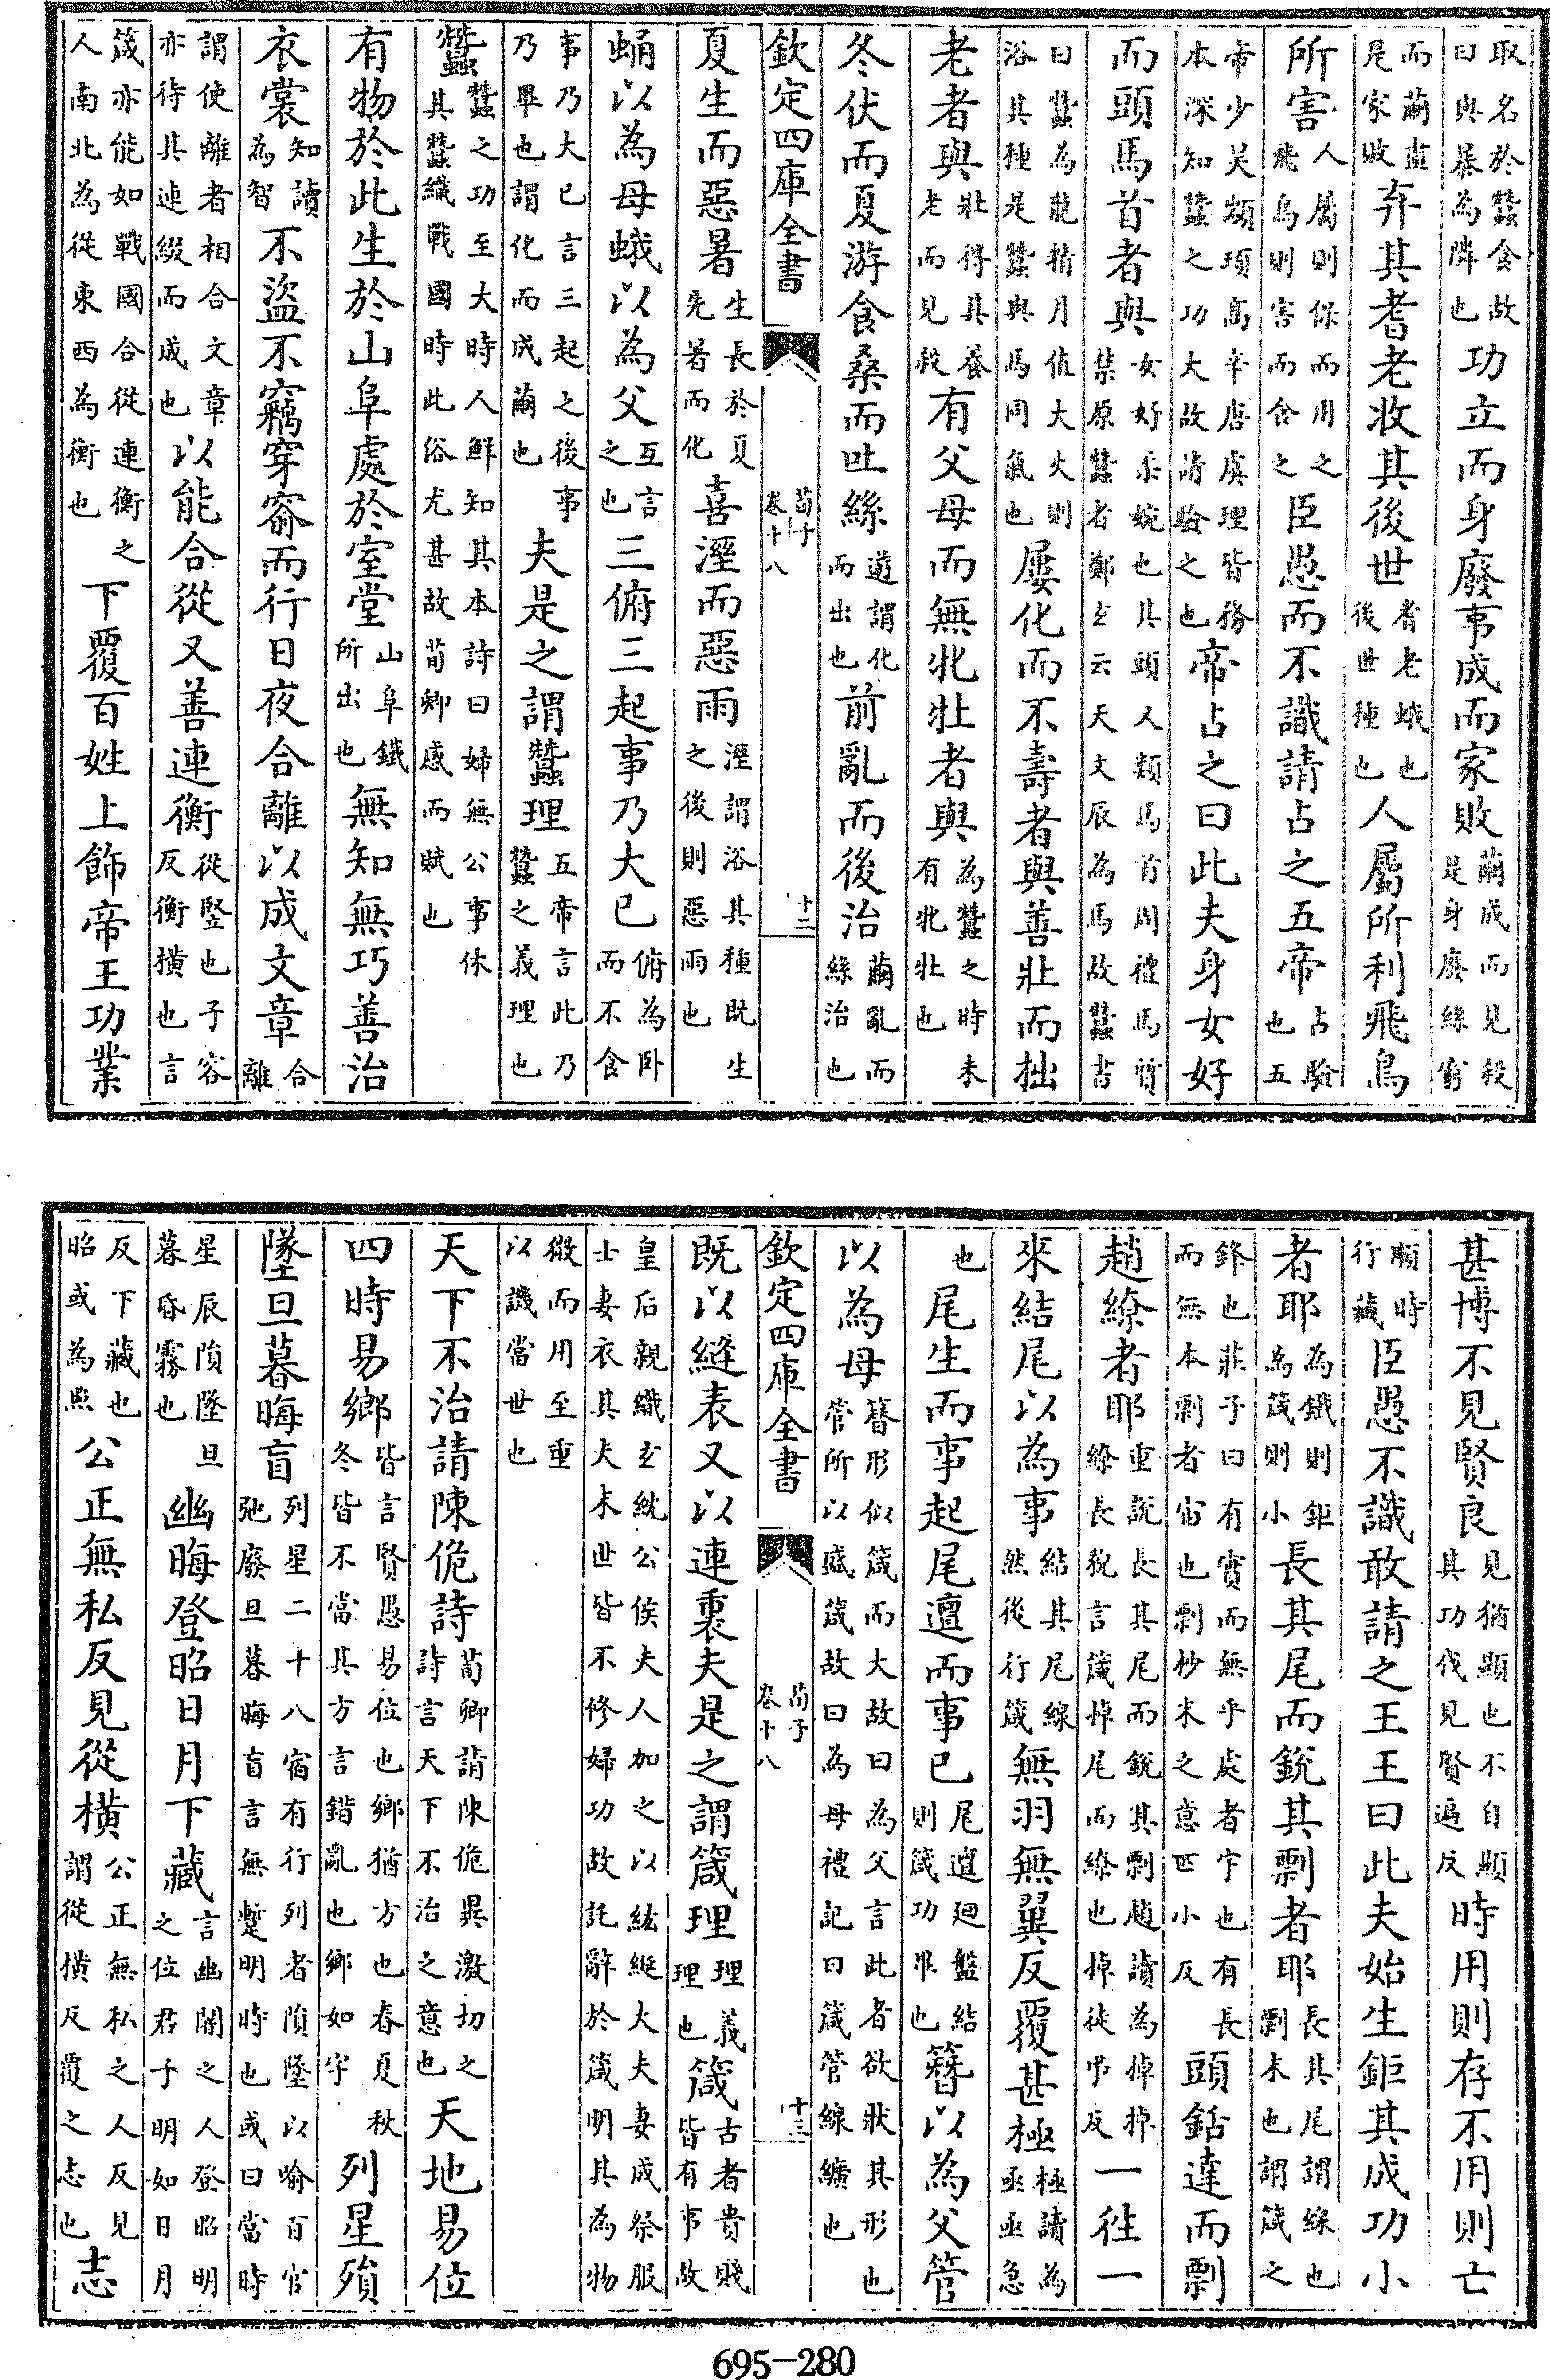 取名於蠶食故曰與暴為隣也功立而身廢事成而家敗繭成而見殺是身廢絲窮
而繭盡是家敗弃其耆老收其後世耆老蛾也後世種也人屬所利飛鳥
所害人屬則保而用之飛鳥則害而食之臣愚而不識請占之五帝占驗也五
帝少昊顓頊高辛唐虞理皆務本深知蠶之功大故請驗之也帝占之曰此夫身女好
而頭馬首者與女好柔婉也其頭又類馬首周禮馬質禁原蠶者鄭玄云天文辰為馬故蠶書
曰蠶為龍精月值大火則浴其種是蠶與馬同氣也屢化而不壽者與善壯而拙
老者與壯得其養老而見殺有父母而無牝牡者與為蠶之時未有牝牡也
冬伏而夏游食桑而吐絲遊謂化而出也前亂而後治繭亂而絲治也
欽定四庫全書 荀子卷十八 十二
夏生而惡暑生長於夏先暑而化喜溼而惡雨溼謂浴其種既生之後則惡雨也
蛹以為母蛾以為父互言之也三俯三起事乃大已俯為臥而不食
事乃大已言三起之後事乃畢也謂化而成繭也夫是之謂蠶理五帝言此乃蠶之義理也
蠶蠶之功至大時人鮮知其本詩曰婦無公事休其蠶織戰國時此俗尤甚故荀卿感而賦也
有物於此生於山阜處於室堂山阜鐵所出也無知無巧善治
衣裳知讀為智不盜不竊穿窬而行日夜合離以成文章合離
謂使離者相合文章亦待其連綴而成也以能合從又善連衡從豎也子容反衡橫也言
箴亦能如戰國合從連衡之人南北為從東西為衡也下覆百姓上飾帝王功業
甚博不見賢良見猶顯也不自顯其功伐見賢遍反時用則存不用則亡
順時行藏臣愚不識敢請之王王曰此夫始生鉅其成功小
者耶為鐵則鉅為箴則小長其尾而銳其剽者耶長其尾謂線也剽末也謂箴之
鋒也莊子曰有實而無乎處者宇也有長而無本剽者宙也剽杪末之意匹小反頭銛達而剽
趙繚者耶重說長其尾而銳其剽趙讀為掉掉繚長貌言箴掉尾而繚也掉徒弔反一往一
來結尾以為事結其尾線然後行箴無羽無翼反覆甚極極讀為亟亟急
也尾生而事起尾邅而事已尾邅迴盤結則箴功畢也簪以為父管
以為母簪形似箴而大故曰為父言此者欲狀其形也管所以盛箴故曰為母禮記曰箴管線纊也
欽定四庫全書 荀子卷十八 十三
既以縫表又以連裏夫是之謂箴理理義理也箴古者貴賤皆有事故
皇后親織玄紞公侯夫人加之以紘綖大夫妻成祭服士妻衣其夫末世皆不修婦功故託辭於箴明其為物
微而用至重以譏當世也
天下不治請陳佹詩荀卿請陳佹異激切之詩言天下不治之意也天地易位
四時易鄉皆言賢愚易位也鄉猶方也春夏秋冬皆不當其方言錯亂也鄉如字列星殞
墜旦暮晦盲列星二十八宿有行列者隕墜以喻百官弛廢旦暮晦盲言無蹔明時也或曰當時
星辰隕墜旦暮昏霧也幽晦登昭日月下藏言幽闇之人登昭明之位君子明如日月
反下藏也昭或為照公正無私反見從橫公正無私之人反見謂從橫反覆之志也志
695-280